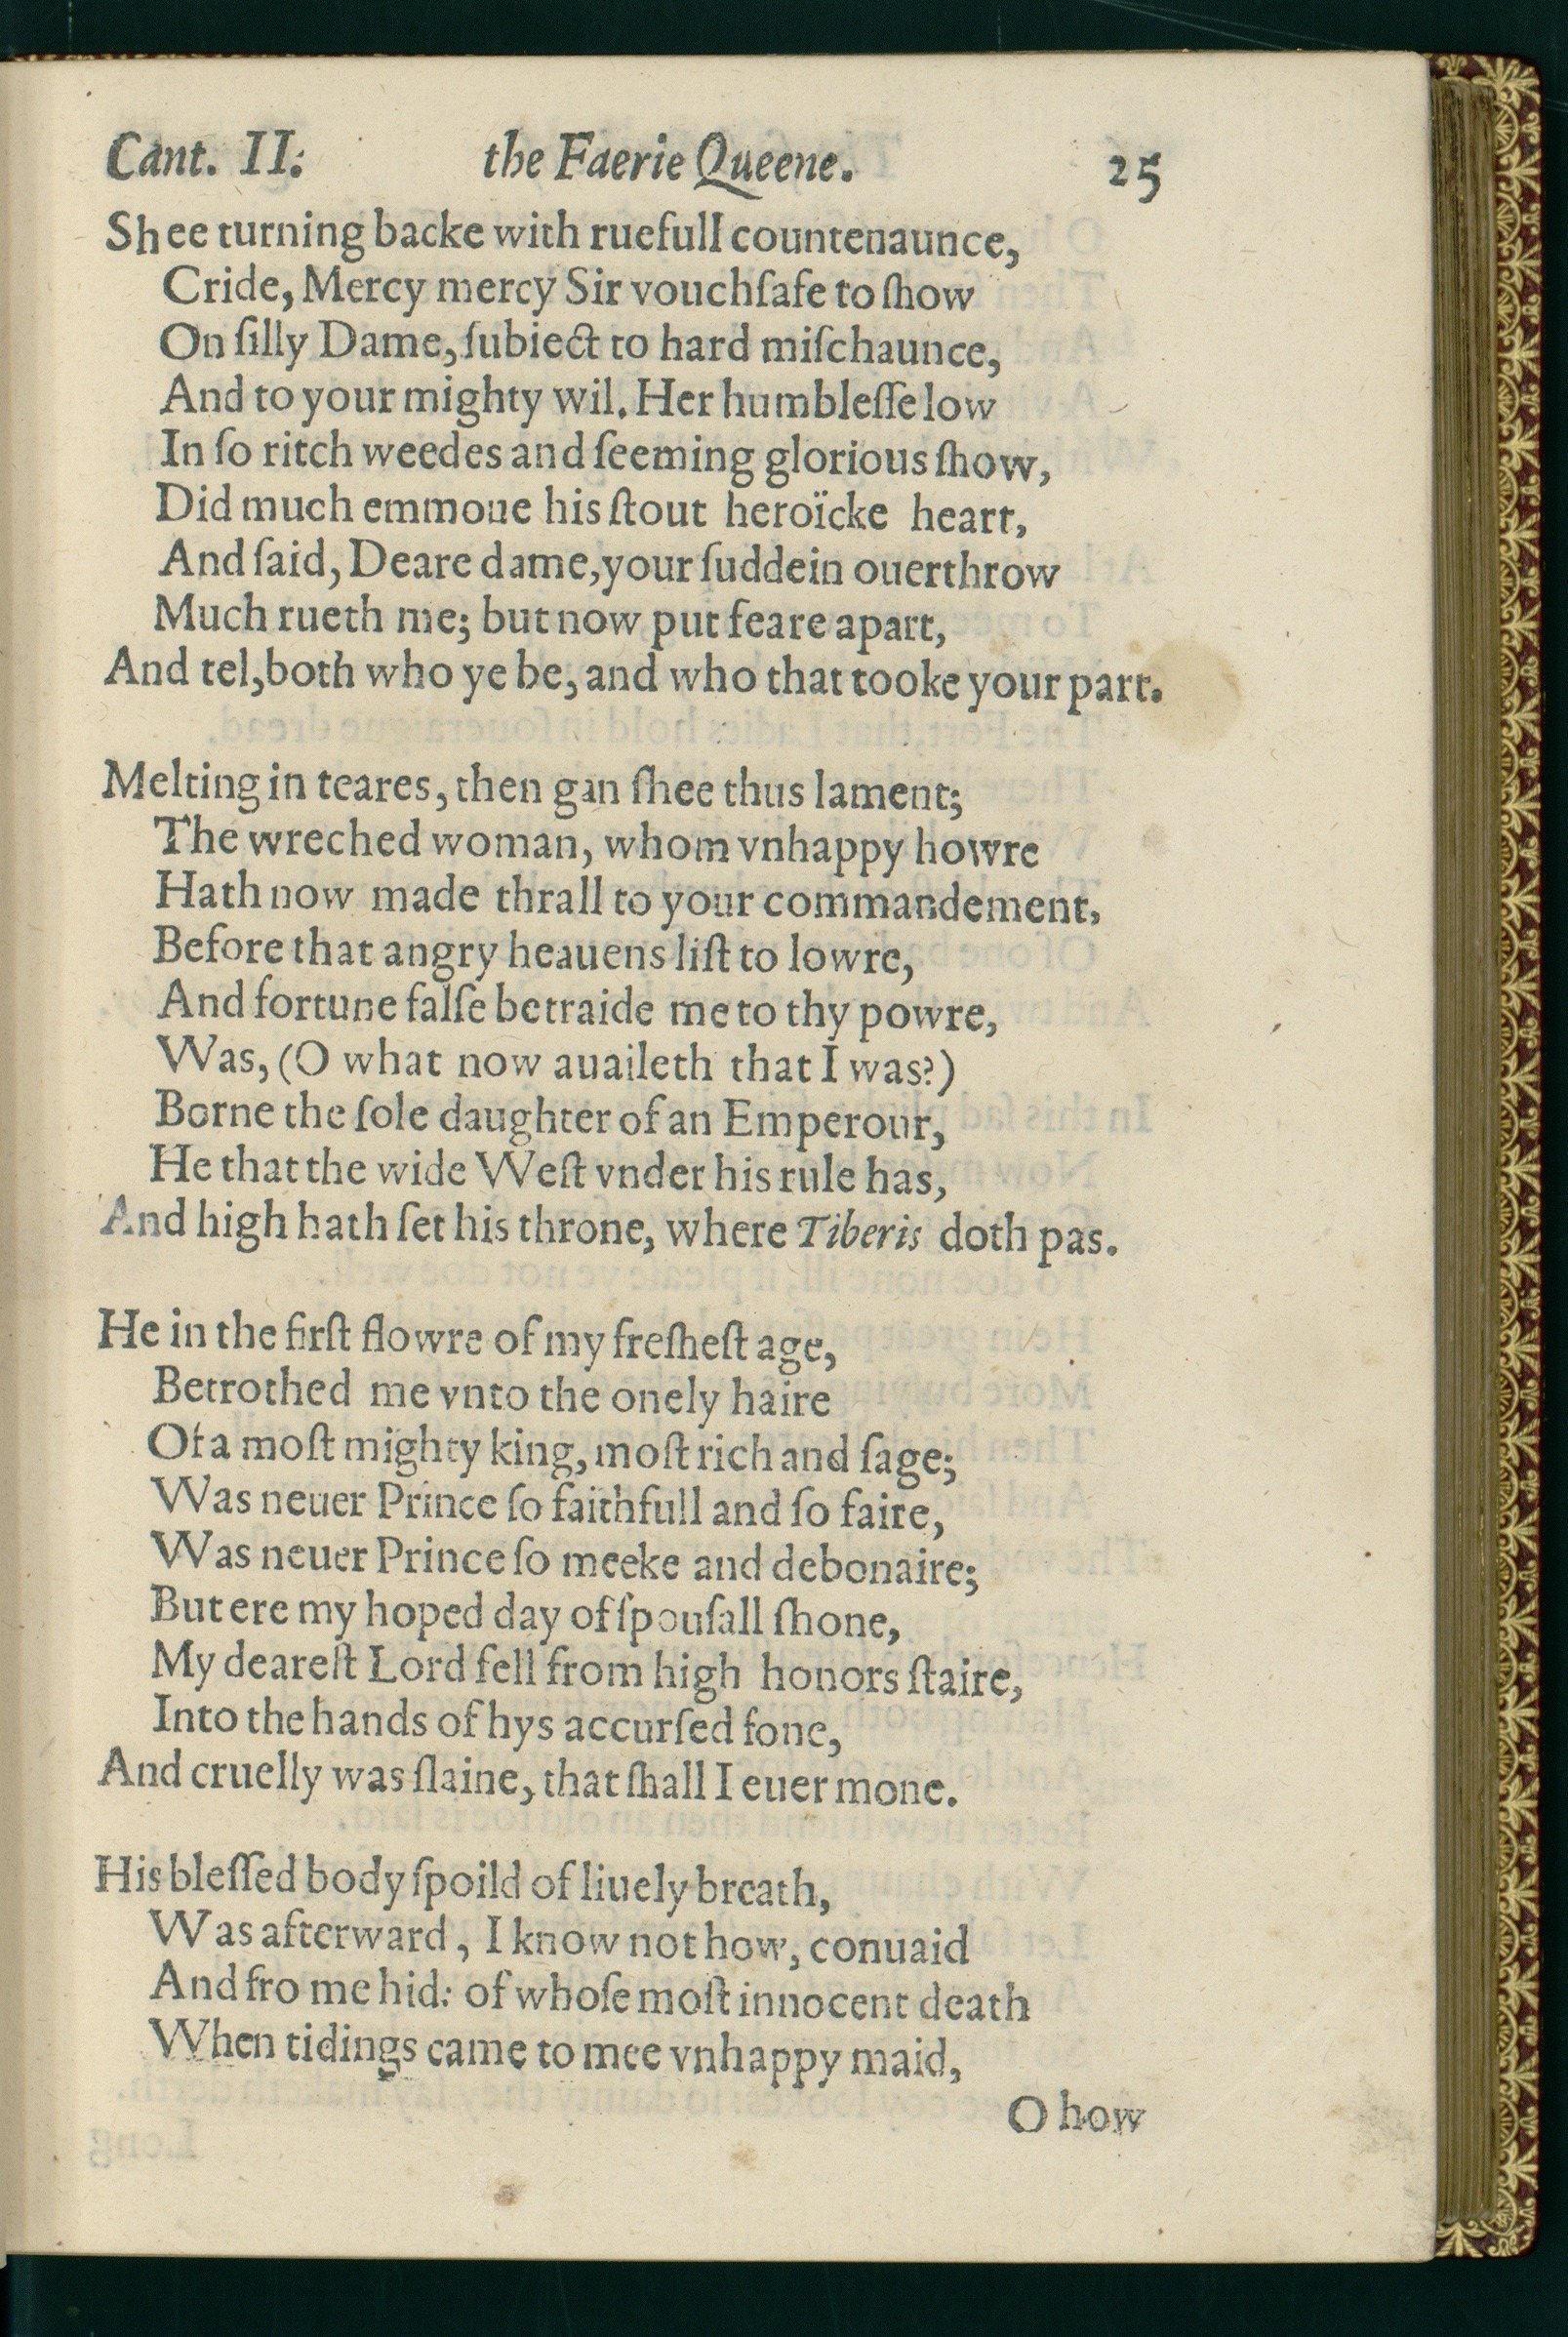 Cant. II. the Faerie Queene. 25
Shee turning backe with ruefull countenaunce,
Cride, Mercy mercy Sir vouchſafe to ſhow
On ſilly Dame, ſubiect to hard miſchaunce,
And to your mighty wil. Her humbleſſe low
In ſo ritch weedes and ſeeming glorious ſhow,
Did much emmoue his ſtout heroïcke heart,
And ſaid, Deare dame, your ſuddein ouerthrow
Much rueth me; but now put feare apart,
And tel, both who ye be, and who that tooke your part.
Melting in teares, then gan ſhee thus lament;
The wreched woman, whom vnhappy howre
Hath now made thrall to your commandement,
Before that angry heauens liſt to lowre,
And fortune falſe betraide me to thy powre,
Was, (O what now auaileth that I was?)
Borne the ſole daughter of an Emperour,
He that the wide Weſt vnder his rule has,
And high hath ſet his throne, where Tiberis doth pas.
He in the firſt flowre of my freſheſt age,
Betrothed me vnto the onely haire
Of a moſt mighty king, moſt rich and ſage;
Was neuer Prince ſo faithfull and ſo faire,
Was neuer Prince ſo meeke and debonaire;
But ere my hoped day of ſpouſall ſhone,
My deareſt Lord fell from high honors ſtaire,
Into the hands of hys accurſed fone,
And cruelly was ſlaine, that ſhall I euer mone.
His bleſſed body ſpoild of liuely breath,
Was afterward, I know not how, conuaid
And fro me hid: of whoſe moſt innocent death
When tidings came to mee vnhappy maid,
O how